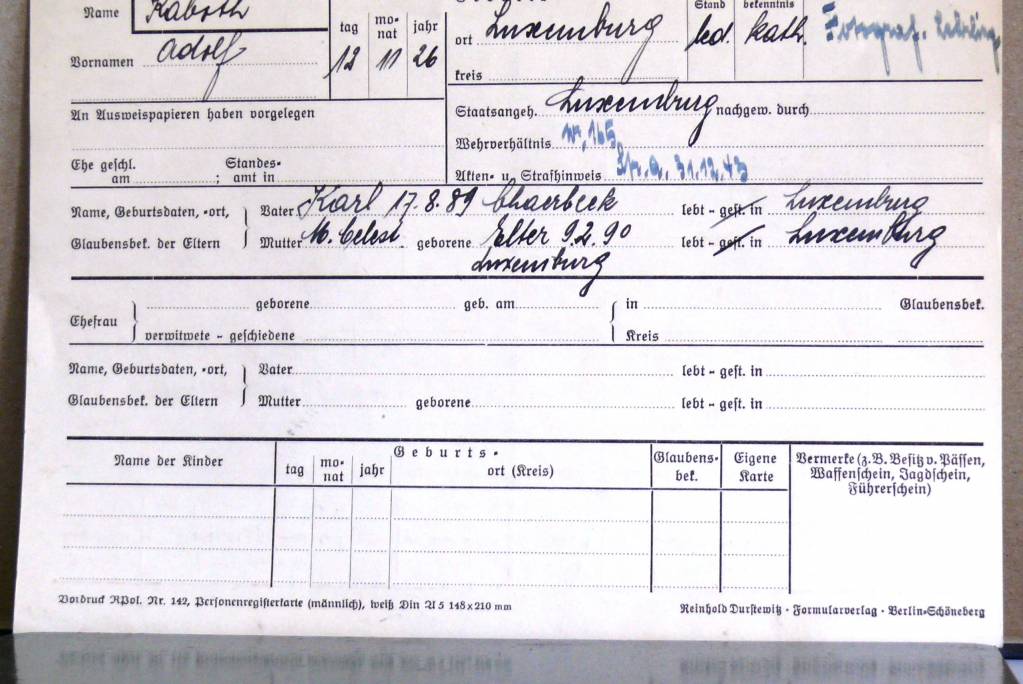 Name Kaboth tag monat jahr ort Luxemburg Stand led. bekenntnis kath. Fotograf. Lehrling
Vornamen Adolf 12 11 26 kreis
An Ausweispapieren haben vorgelegen
Staatsangeh. Luxemburg nachgew. durch
Wehrverhältnis
Ehe geschl. am ; Standes-amt in
Akten- u. Strafhinweis 31.12.43
Name, Geburtsdaten, -ort, Vater Karl 17.8.89 Schaerbeck lebt - gest. in Luxemburg
Glaubensbek. der Eltern Mutter M. Celest. geborene Elter 9.2.90 lebt - gest. in Luxemburg
Luxemburg
Ehefrau geborene geb. am in Glaubensbek.
verwitwete - geschiedene Kreis
Name, Geburtsdaten, -ort, Vater lebt - gest. in
Glaubensbek. der Eltern Mutter geborene lebt - gest. in
Name der Kinder Geburts- Glaubens-bek. Eigene Karte Vermerke (z.B. Besitz v. Pässen,
tag mo-nat jahr ort (Kreis) Waffenschein, Jagdschein,
Führerschein)
Vordruck RPol. Nr. 142, Personenregisterkarte (männlich), weiß Din A 5 148 x 210 mm
Reinhold Durstewitz · Formularverlag · Berlin-Schöneberg